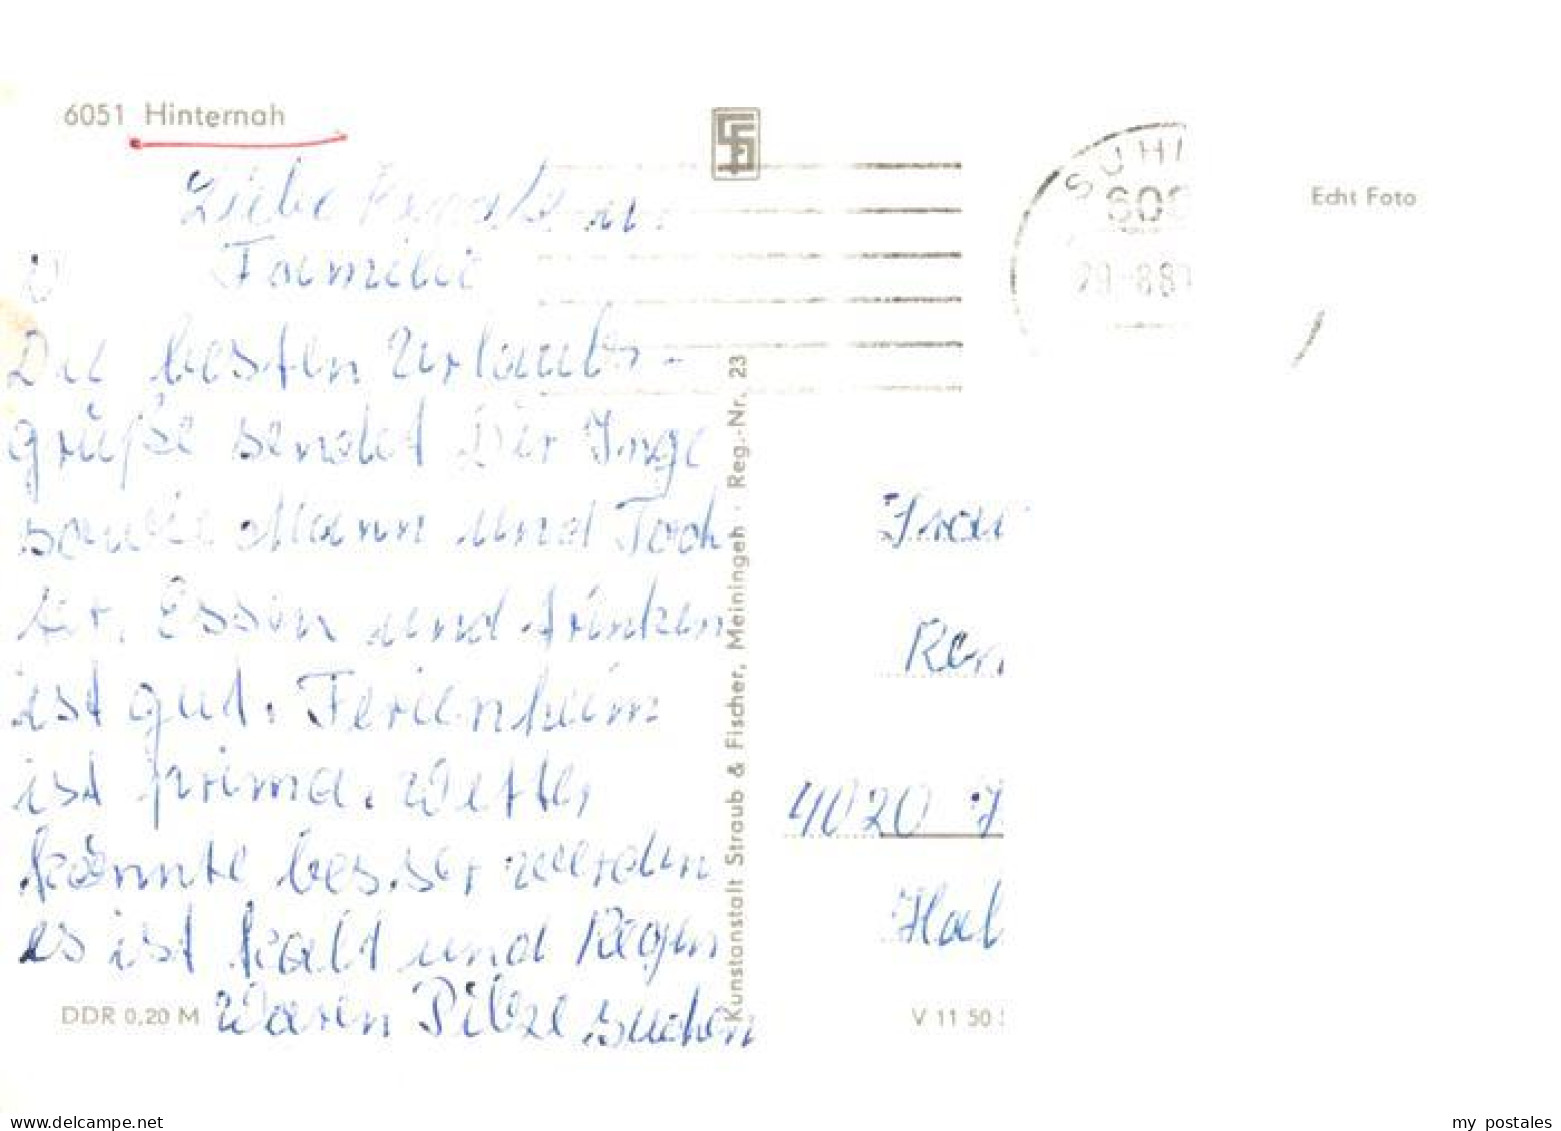 6051 Hinternah
SUHL
29.-8.88
Echt Foto
Liebe u.
Familie
Die besten Urlaubs-
grüße sendet Dir Inge
sowie Mann und Toch
ter. Essen und trinken
ist gut. Ferienheim
ist prima. Wetter
könnte besser werden
es ist kalt und Regen
Waren Pilze suchen
DDR 0,20 M
Kunstanstalt Straub & Fischer, Meiningen · Reg.-Nr. 23
Frau
4020
V 11 50
my_postales